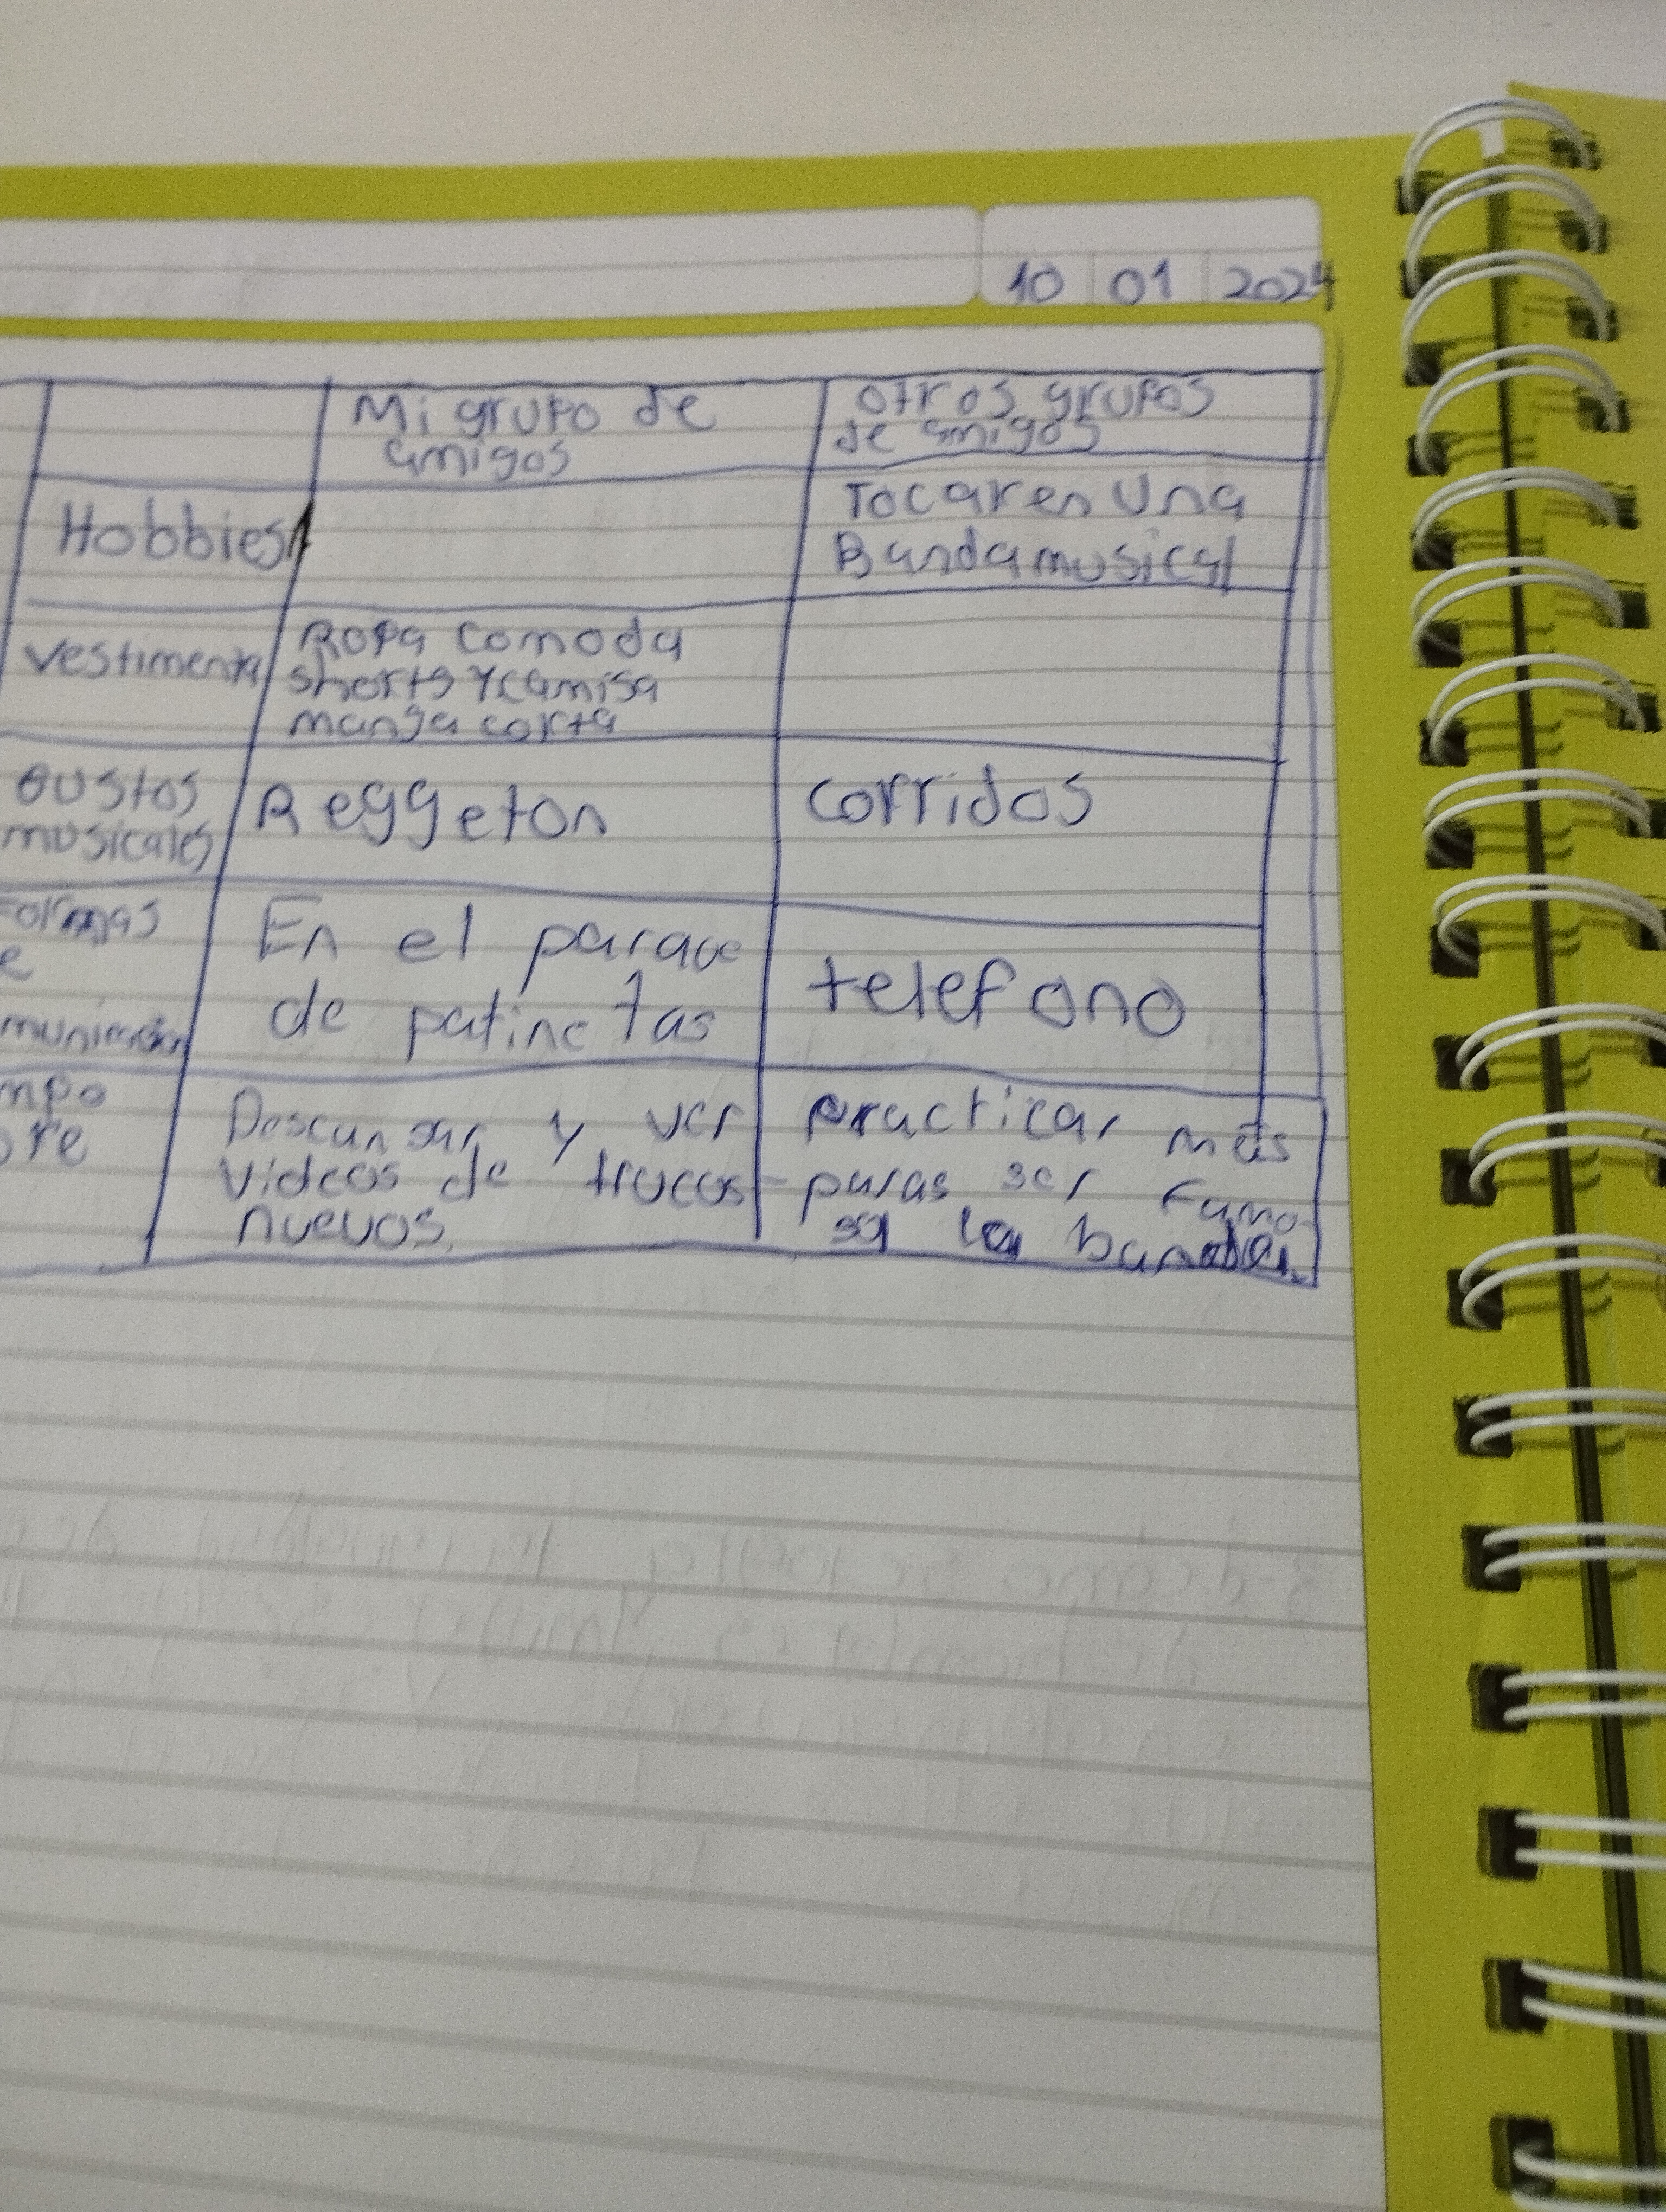 10 01 2024
Mi grupo de
amigos
otros grupos
de amigos
Hobbies
Tocar en una
Banda musical
vestimenta
Ropa comoda
shorts y camisa
manga corta
Gustos
musicales
Reggeton
corridos
Formas
e
municación
En el parque
de patinetas
telefono
mpo
bre
Descansar y ver
videos de trucos
nuevos.
practicar más
paras ser famo-
sa la banda.